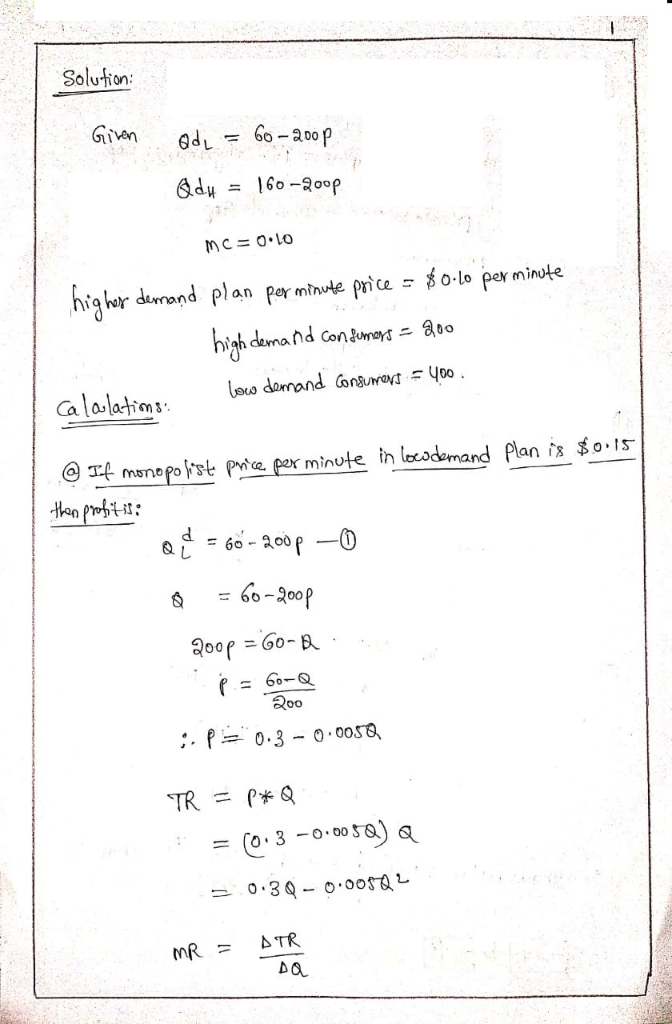 1
Solution:
Given QdL = 60 - 200p
QdH = 160 - 200p
mc = 0.10
higher demand plan per minute price = $0.10 per minute
high demand consumers = 200
low demand consumers = 400.
Calalations:
ⓐ If monopolist price per minute in lowdemand Plan is $0.15
then profit is:
Q_L^d = 60 - 200p —①
Q = 60 - 200p
200p = 60 - Q
p = (60 - Q)/200
∴ p = 0.3 - 0.005Q
TR = P*Q
= (0.3 - 0.005Q) Q
= 0.3Q - 0.005Q2
MR = ΔTR/ΔQ